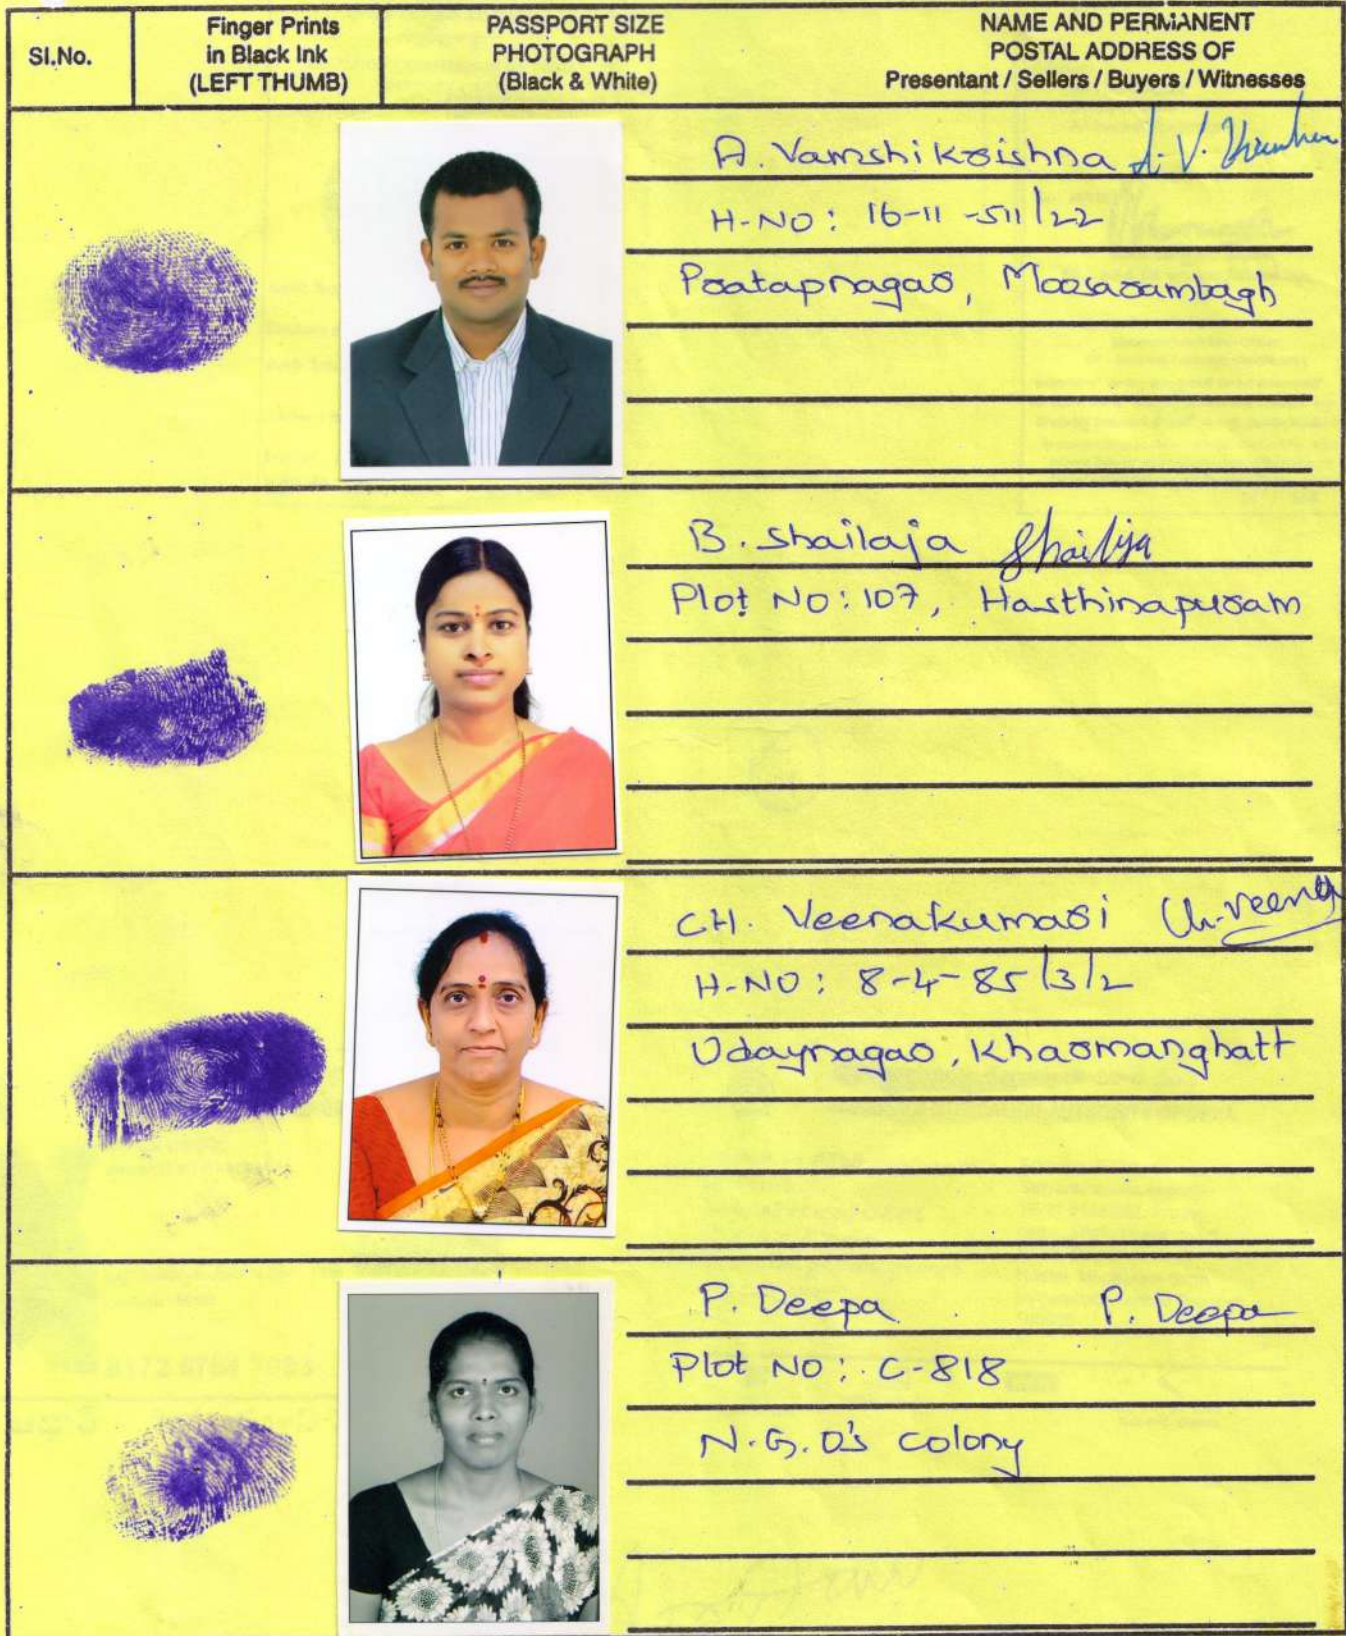 Sl.No.
Finger Prints
in Black Ink
(LEFT THUMB)
PASSPORT SIZE
PHOTOGRAPH
(Black & White)
NAME AND PERMANENT
POSTAL ADDRESS OF
Presentant / Sellers / Buyers / Witnesses
A. Vamshi krishna A. V.
H-NO: 16-11-511/22
Pratapnagar, Moosarambagh
B. Shailaja Shailja
Plot NO: 107, Hasthinapuram
CH. Veenakumari Ch. Veena
H-NO: 8-4-85/3/2
Udaynagar, Kharmanghatt
P. Deepa P. Deepa
Plot NO: C-818
N.G.O's colony